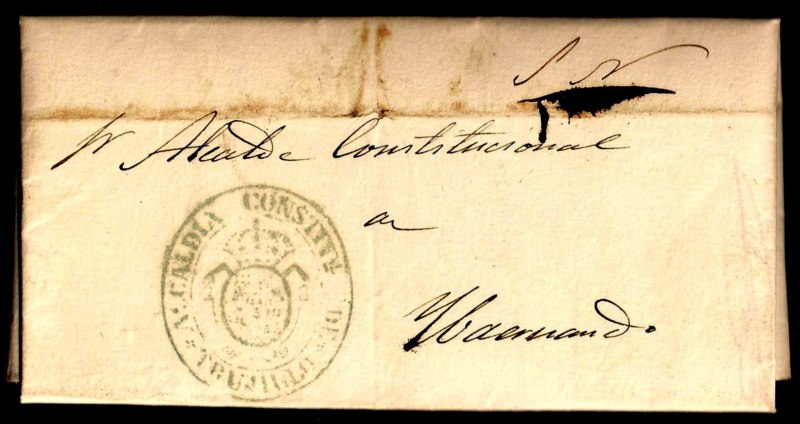 S N
Sr Alcalde Constitucional
de
Ybaernando
ALCALDIA CONSTITL. DE TRUJILLO